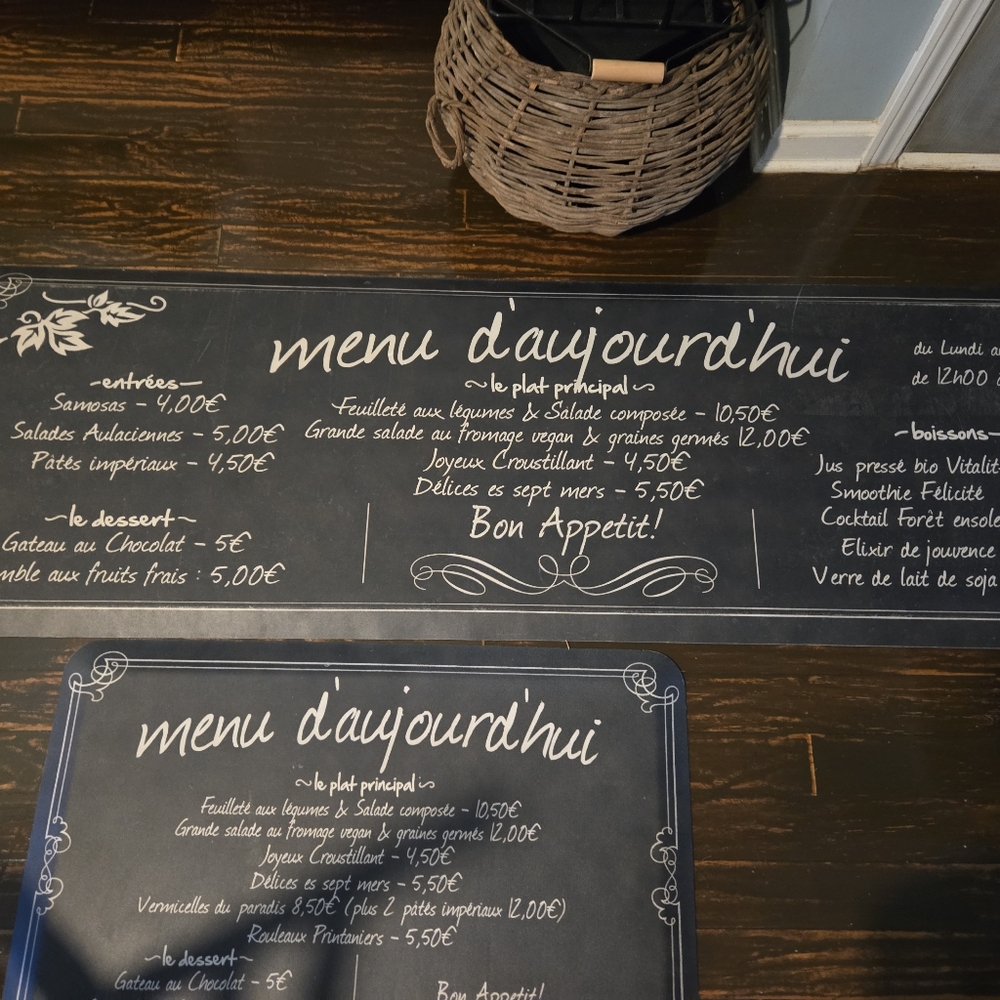 menu d'aujourd'hui
du Lundi
de 12h00
~entrées~
Samosas - 4,00€
Salades Aulaciennes - 5,00€
Pâtés impériaux - 4,50€
~le plat principal~
Feuilleté aux légumes & Salade composée - 10,50€
Grande salade au fromage vegan & graines germés 12,00€
Joyeux Croustillant - 4,50€
Délices es sept mers - 5,50€
~boissons~
Jus pressé bio
Smoothie Félicité
Cocktail Forêt
Elixir de jouvence
Verre de lait de soja
~le dessert~
Gateau au Chocolat - 5€
aux fruits frais : 5,00€
Bon Appetit!
menu d'aujourd'hui
~le plat principal~
Feuilleté aux légumes & Salade composée - 10,50€
Grande salade au fromage vegan & graines germés 12,00€
Joyeux Croustillant - 4,50€
Délices es sept mers - 5,50€
Vermicelles du paradis 8,50€ (plus 2 pâtés impériaux 12,00€)
Rouleaux Printaniers - 5,50€
~le dessert~
Gateau au Chocolat - 5€
Bon Appetit!